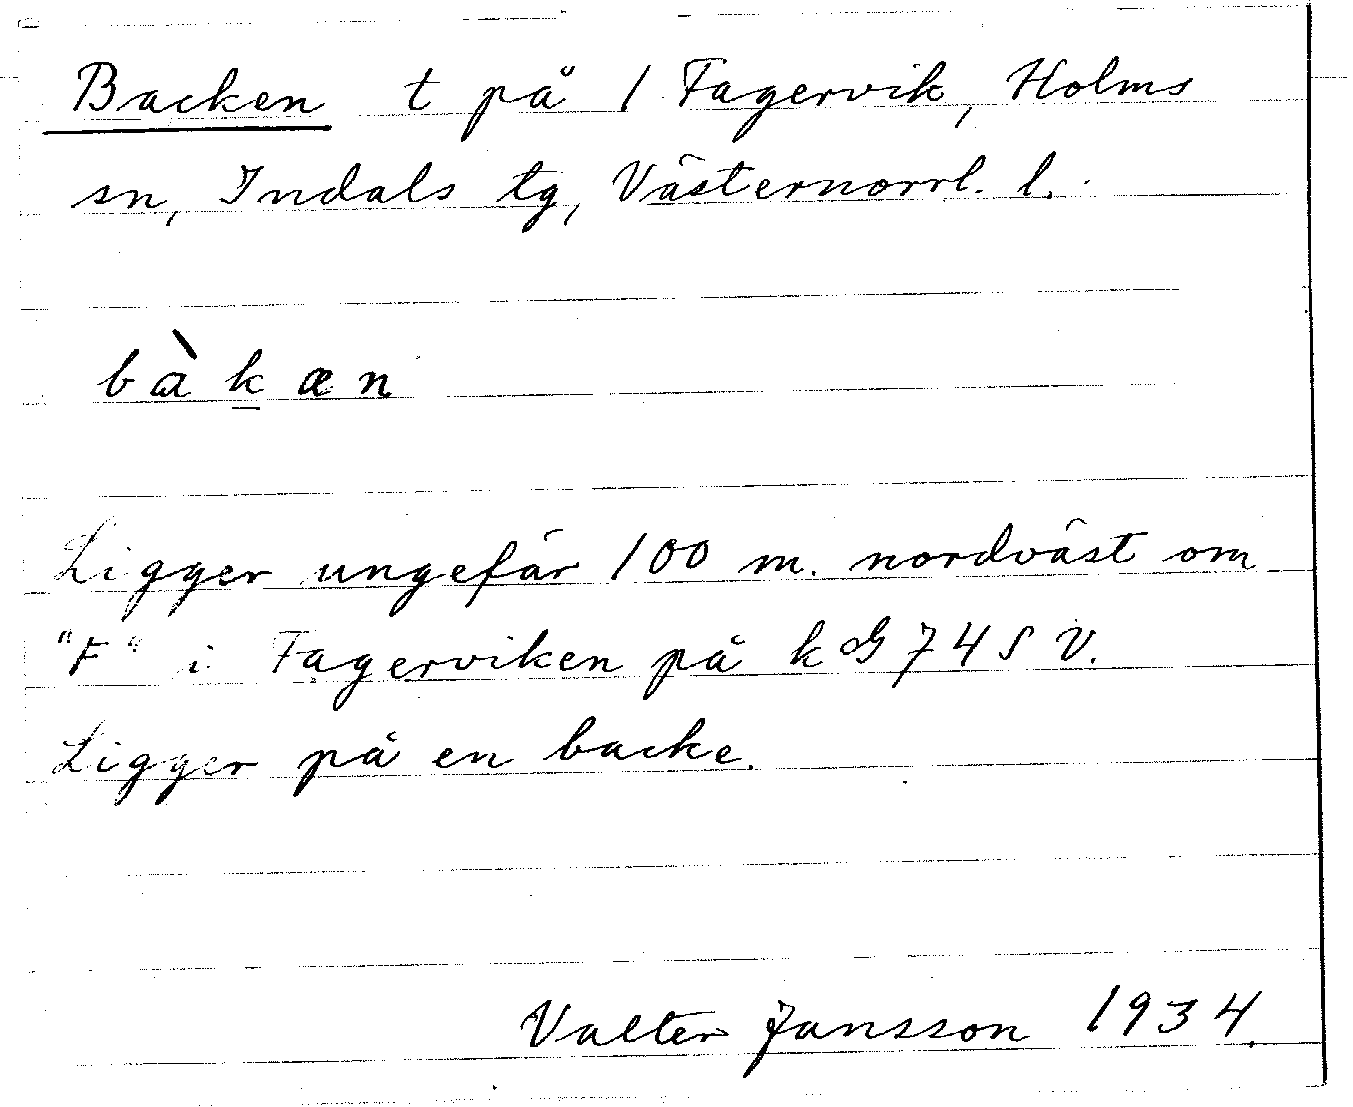 Backen t på 1 Fagervik, Holms
sn, Indals tg, Västernorrl. l.
bàkæn
Ligger ungefär 100 m. nordväst om
"F" i Fagerviken på k G 74 S V.
Ligger på en backe.
Valter Jansson 1934.